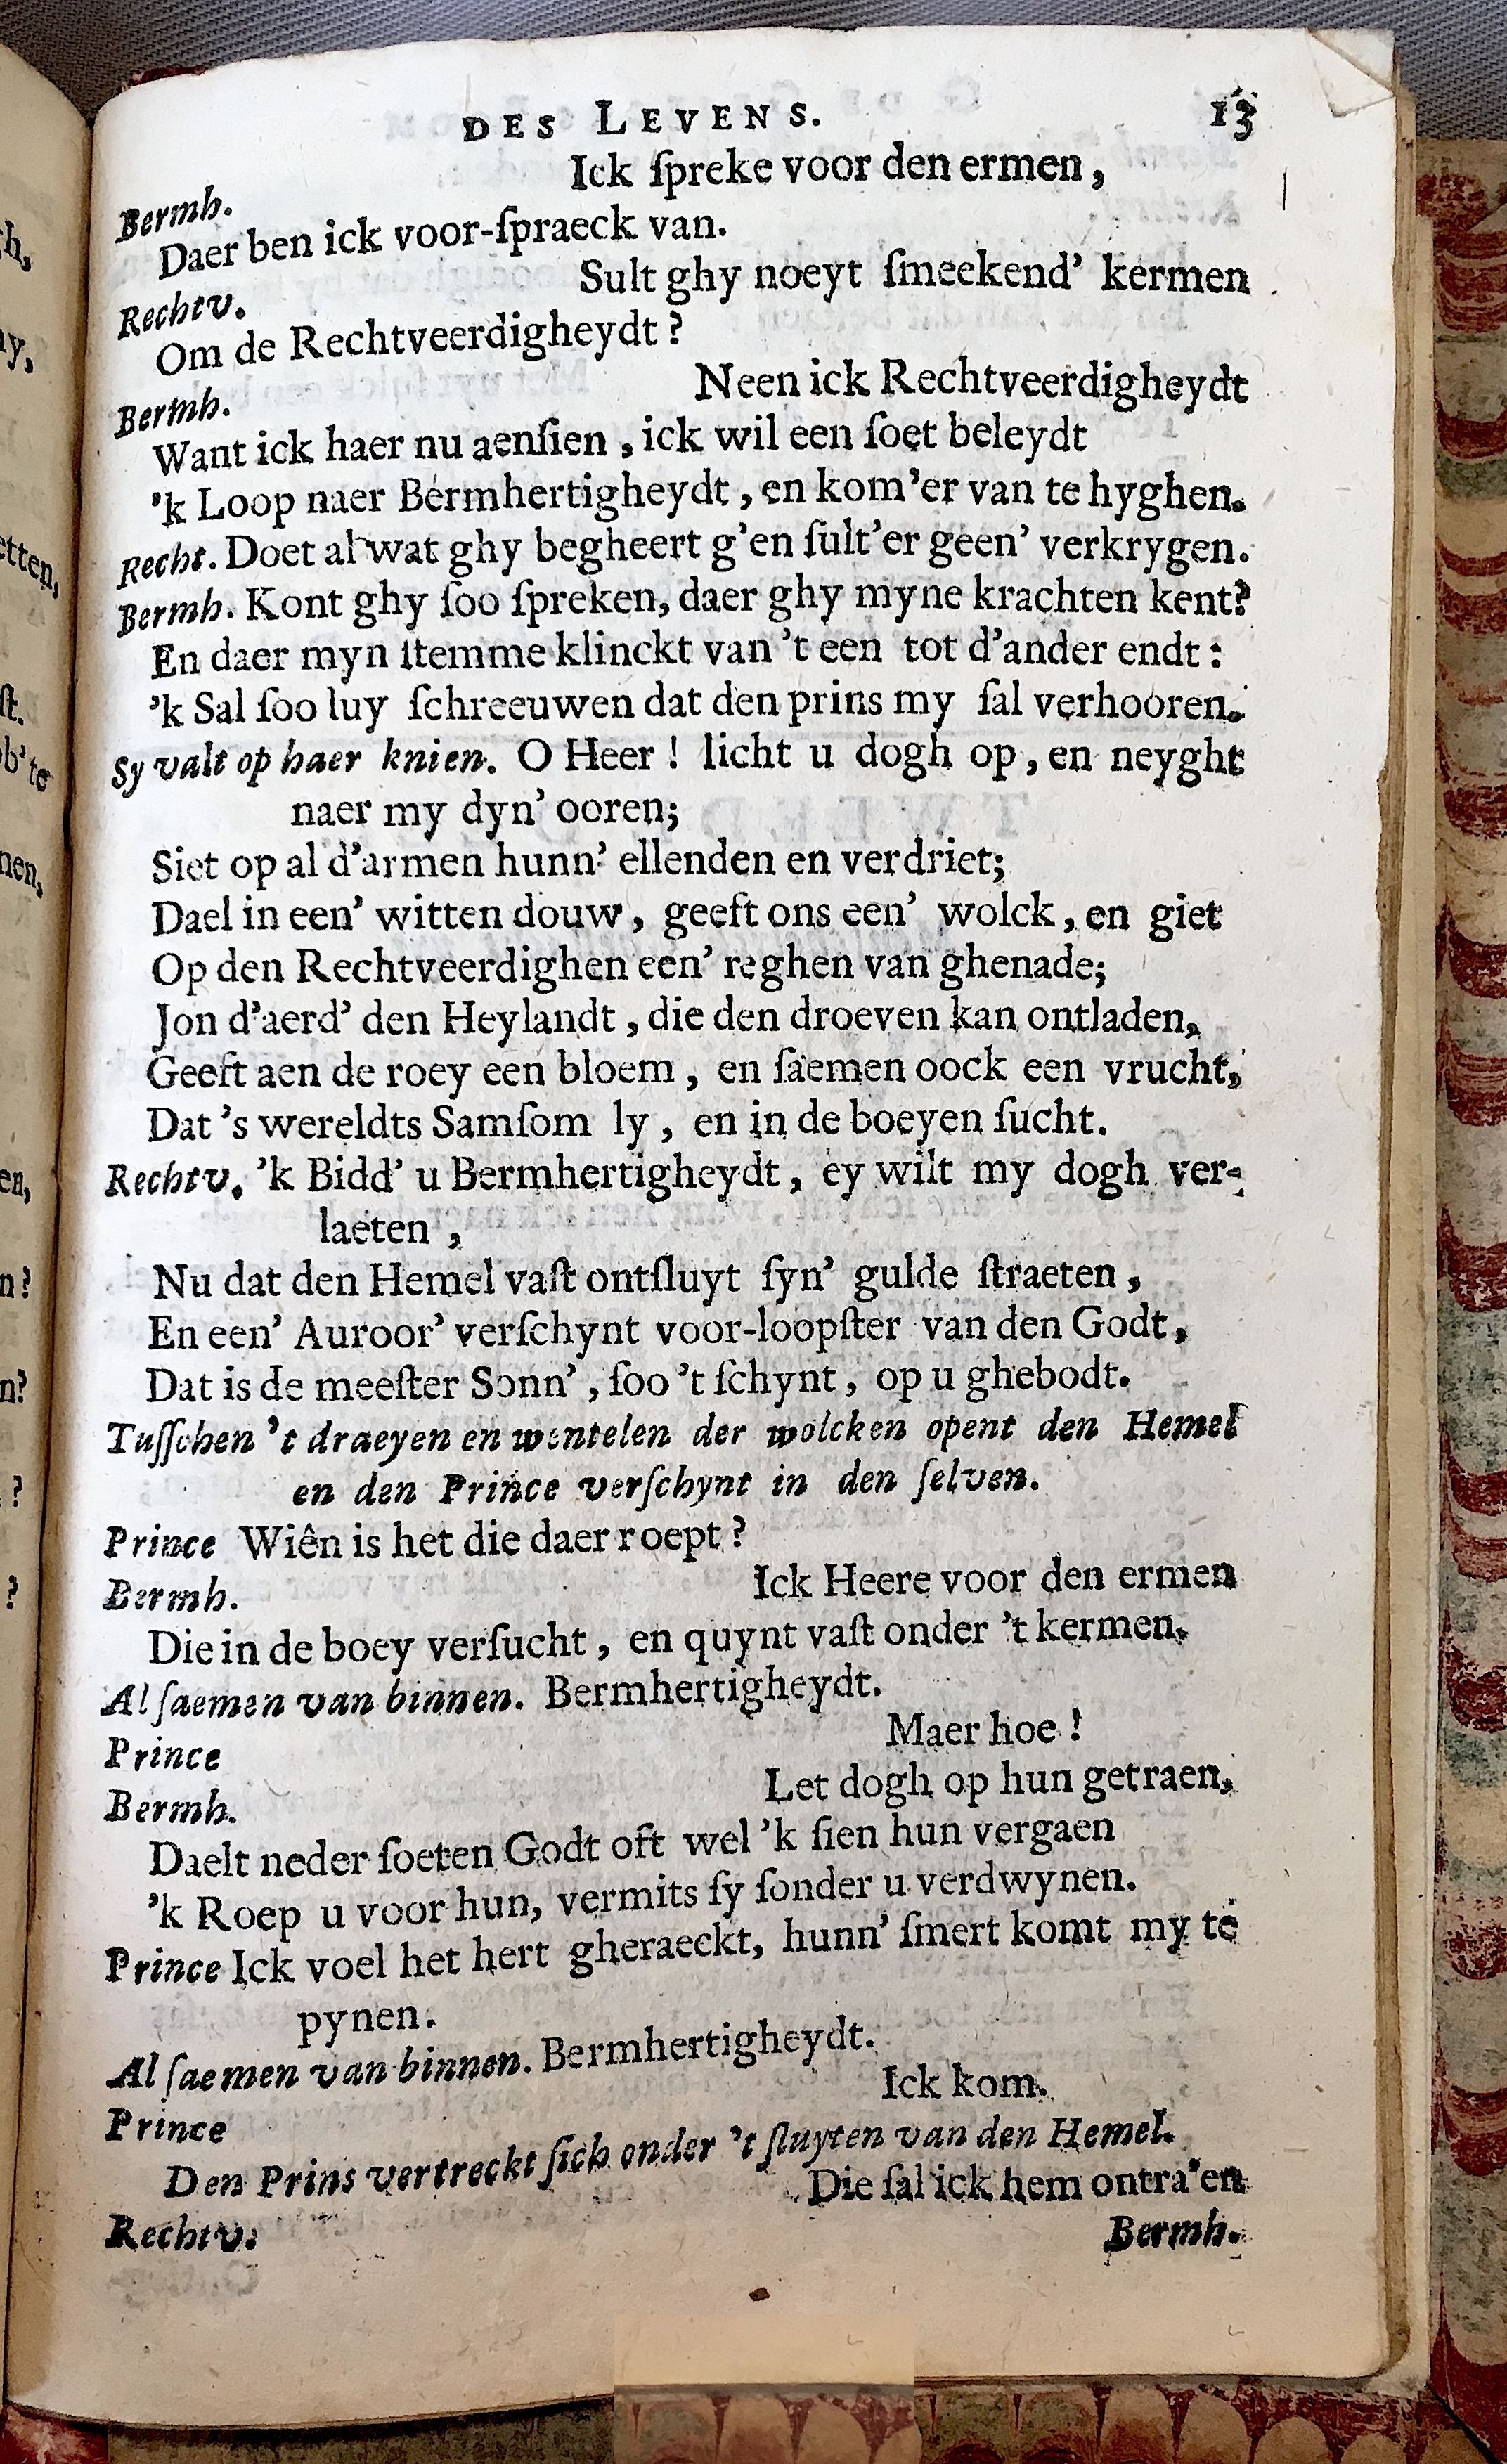 DES LEVENS. 13
Bermh. Ick ſpreke voor den ermen,
Daer ben ick voor-ſpraeck van.
Rechtv. Sult ghy noeyt ſmeekend' kermen
Om de Rechtveerdigheydt?
Bermh. Neen ick Rechtveerdigheydt
Want ick haer nu aenſien, ick wil een ſoet beleydt
'k Loop naer Bermhertigheydt, en kom'er van te hyghen.
Recht. Doet al wat ghy begheert g'en ſult'er geen' verkrygen.
Bermh. Kont ghy ſoo ſpreken, daer ghy myne krachten kent?
En daer myn ſtemme klinckt van 't een tot d'ander endt:
'k Sal ſoo luy ſchreeuwen dat den prins my ſal verhooren.
Sy valt op haer knien. O Heer! licht u dogh op, en neyght
naer my dyn' ooren;
Siet op al d'armen hunn' ellenden en verdriet;
Dael in een' witten douw, geeft ons een' wolck, en giet
Op den Rechtveerdighen een' reghen van ghenade;
Jon d'aerd' den Heylandt, die den droeven kan ontladen,
Geeft aen de roey een bloem, en ſaemen oock een vrucht,
Dat 's wereldts Samſom ly, en in de boeyen ſucht.
Rechtv. 'k Bidd' u Bermhertigheydt, ey wilt my dogh ver-
laeten,
Nu dat den Hemel vaſt ontſluyt ſyn' gulde ſtraeten,
En een' Auroor' verſchynt voor-loopſter van den Godt,
Dat is de meeſter Sonn', ſoo 't ſchynt, op u ghebodt.
Tuſſchen 't draeyen en wentelen der wolcken opent den Hemel
en den Prince verſchynt in den ſelven.
Prince Wiên is het die daer roept?
Bermh. Ick Heere voor den ermen
Die in de boey verſucht, en quynt vaſt onder 't kermen.
Al ſaemen van binnen. Bermhertigheydt.
Prince Maer hoe!
Bermh. Let dogh op hun getraen,
Daelt neder ſoeten Godt oft wel 'k ſien hun vergaen
'k Roep u voor hun, vermits ſy ſonder u verdwynen.
Prince Ick voel het hert gheraeckt, hunn' ſmert komt my te
pynen.
Al ſaemen van binnen. Bermhertigheydt.
Prince Ick kom.
Den Prins vertreckt ſich onder 't ſluyten van den Hemel.
Rechtv. Die ſal ick hem ontra'en
Bermh.